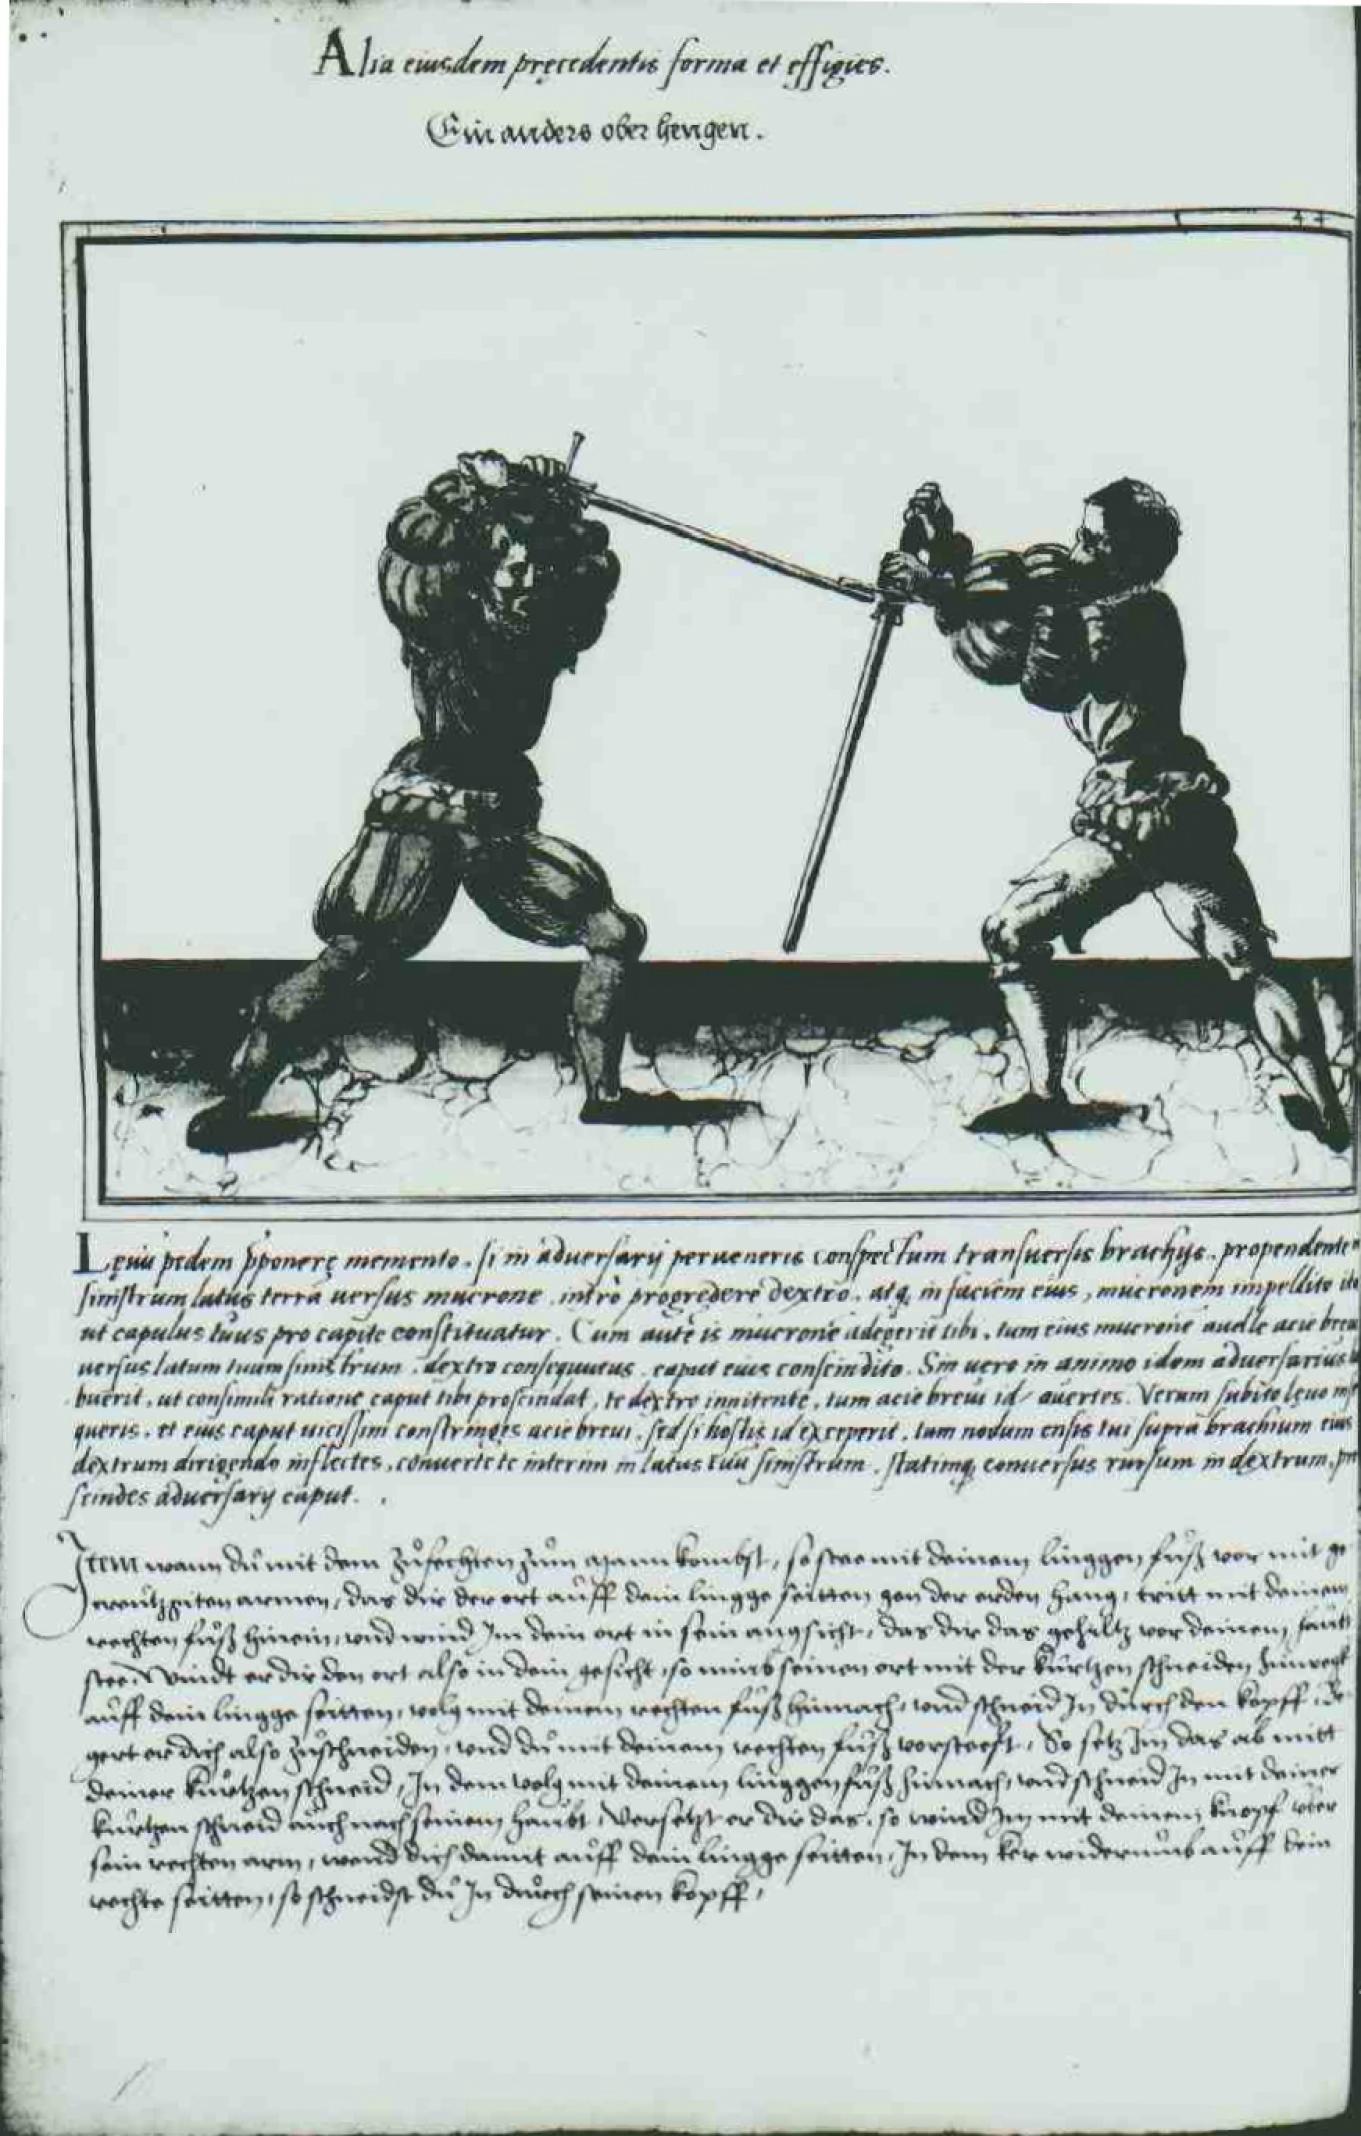 Alia eiusdem pręcedentis forma et effigies.
Ein anders ober hengen.
Lęuū pedem p̄ponerę memento, si in adversarij perveneris conspectum transversis brachijs, propendente
sinistrum latus terrā versus mucrone, intrò progredere dextro, atq; in faciem eius, mucronem impellito
ut capulus tuus pro capite constituatur. Cum autē is mucronē adegerit tibi, tum eius mucronē avelle acie brevi
versus latum tuum sinistrum, dextro consequutus, caput eius conscindito. Sin vero in animo idem adversarius
buerit, ut consimili ratione caput tibi proscindat, te dextro innitente, tum acie brevi id avertes. Verum subito lęvo
queris, et eius caput vicissim constringes acie brevi, sed si hostis id exceperit, tum nodum ensis tui supra brachium eius
dextrum dirigendo inflectes, converte te interim in latus tuū sinistrum, statimq; conversus rursum in dextrum,
scindes adversarij caput.
Item wann dů mit dem zůfechten zům mann kombst, so stee mit deinem linggen fůß vor mit ge
creützgiten armen, das dir der ort aůff dein lingge seitten gen der erden hang, tritt mit deinem
rechten fůß hinein, und wind Im dein ort in sein angsicht, das dir das gehiltz vor deinem haubt
stee, Windt er dir den ort also in dein gesicht, so nimb seinen ort mit der kůrtzen schneiden hinwegk
aůff dein lingge seitten, volg mit deinem rechten fůß hinnach, und schneid In důrch den kopff, Be
gert er dich also zůschneiden, und dů mit deinem rechten fůß vorsteest, So setz Im das ab mitt
deiner kůrtzen schneid, In dem volg mit deinem linggen fůß hinnach, und schneid In mit deiner
kůrtzen schneid aůch nach seinem haůbt, Versetzt er dir das, so wind Im mit deinem knopf uber
sein rechten arm, wend dich damit aůff dein lingge seitten, In dem ker widerumb aůff dein
rechte seitten, so schneidst dů In důrch seinen kopff,